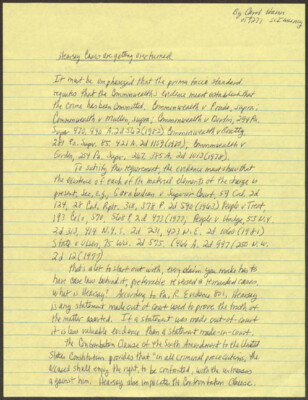 By Carol
Hearsay Cases are getting overturned
It must be emphasized that the prima facie standard
requires that the Commonwealth's evidence must establish that
the crime has been committed. Commonwealth v Prado, supra;
Commonwealth v Mullen, supra, Commonwealth v Austin, 394 Pa.
Super. 470, 476 A.2d 562 (1982) Commonwealth v Beatty,
281 Pa. Super. 85, 421 A.2d 1159 (1980), Commonwealth v
Pa. Super. 262, 385 A.2d (1978).
To satisfy this requirement, the evidence must show that
the existence of each of the material elements of the charge is
present. See, e.g., v. Superior Court, Cal. 2d
124, 28 Cal. Rptr. 318, 378 P. 2d 590 (1963) People v Treat,
193 Colo, 570, 568 P. 2d 473 (1977), People v Hodge, 53 N.Y.
2d 313, 414 N.Y.S. 2d 231, 423 N.E. 2d 1060 (1981)
State v Olsen, 75 2d 575, 1466 A. 2d 447 (250 N.W.
2d 12 (1977)
that's alot to start out with, every claim you make has to
have case law behind it, preferable reversed & remanded cases.
What is Hearsay? According to Pa. R. Evidence 801, Hearsay
is any statement made out of court used to prove the truth of
the matter asserted. If a statement was made out-of-court
it is less valuable evidence than a statement made in-court.
the Confrontation Clause of the Sixth Amendment to the United
States Constitution provides that "in all criminal prosecutions, the
accused shall enjoy the right, to be confronted, with the witnesses
against him. Hearsay also implicates the Confrontation Clause.